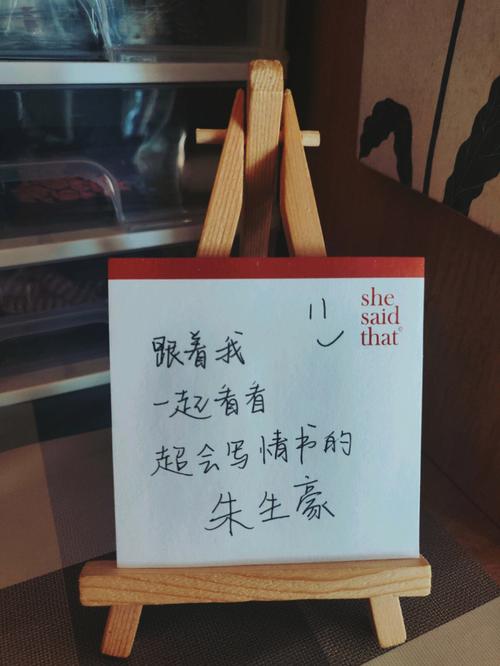 she
said
that
跟着我
一起看看
超会写情书的
朱生豪